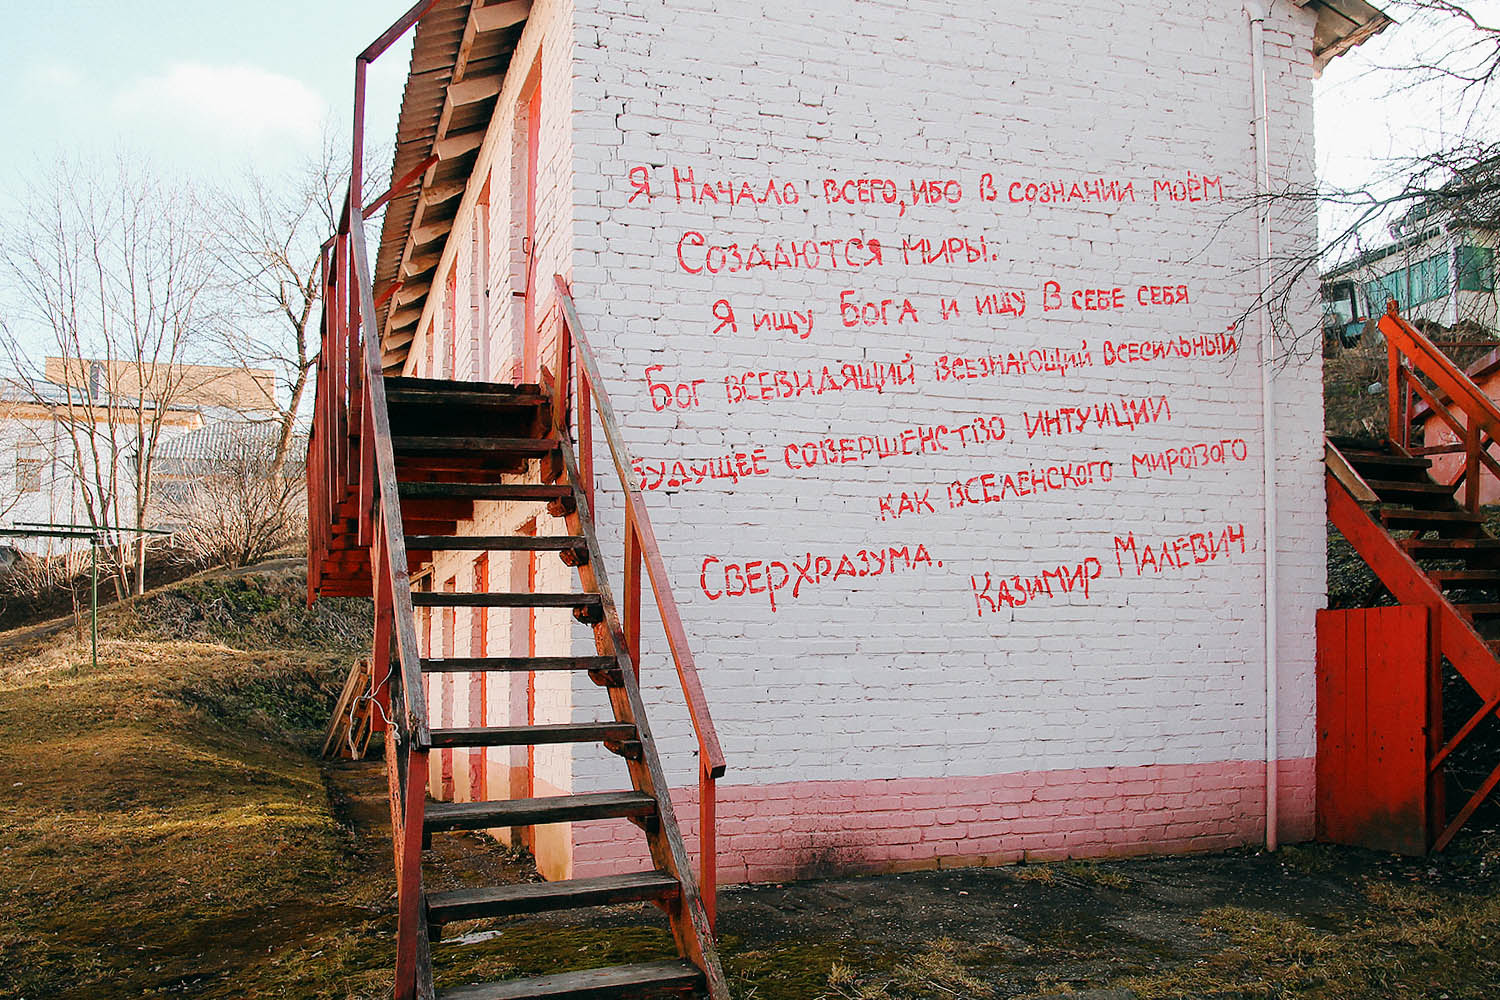 Я НАЧАЛО ВСЕГО, ИБО В СОЗНАНИИ МОЁМ
СОЗДАЮТСЯ МИРЫ.
Я ИЩУ БОГА И ИЩУ В СЕБЕ СЕБЯ
БОГ ВСЕВИДЯЩИЙ ВСЕЗНАЮЩИЙ ВСЕСИЛЬНЫЙ
БУДУЩЕЕ СОВЕРШЕНСТВО ИНТУИЦИИ
КАК ВСЕЛЕНСКОГО МИРОВОГО
СВЕРХРАЗУМА.
КАЗИМИР МАЛЕВИЧ